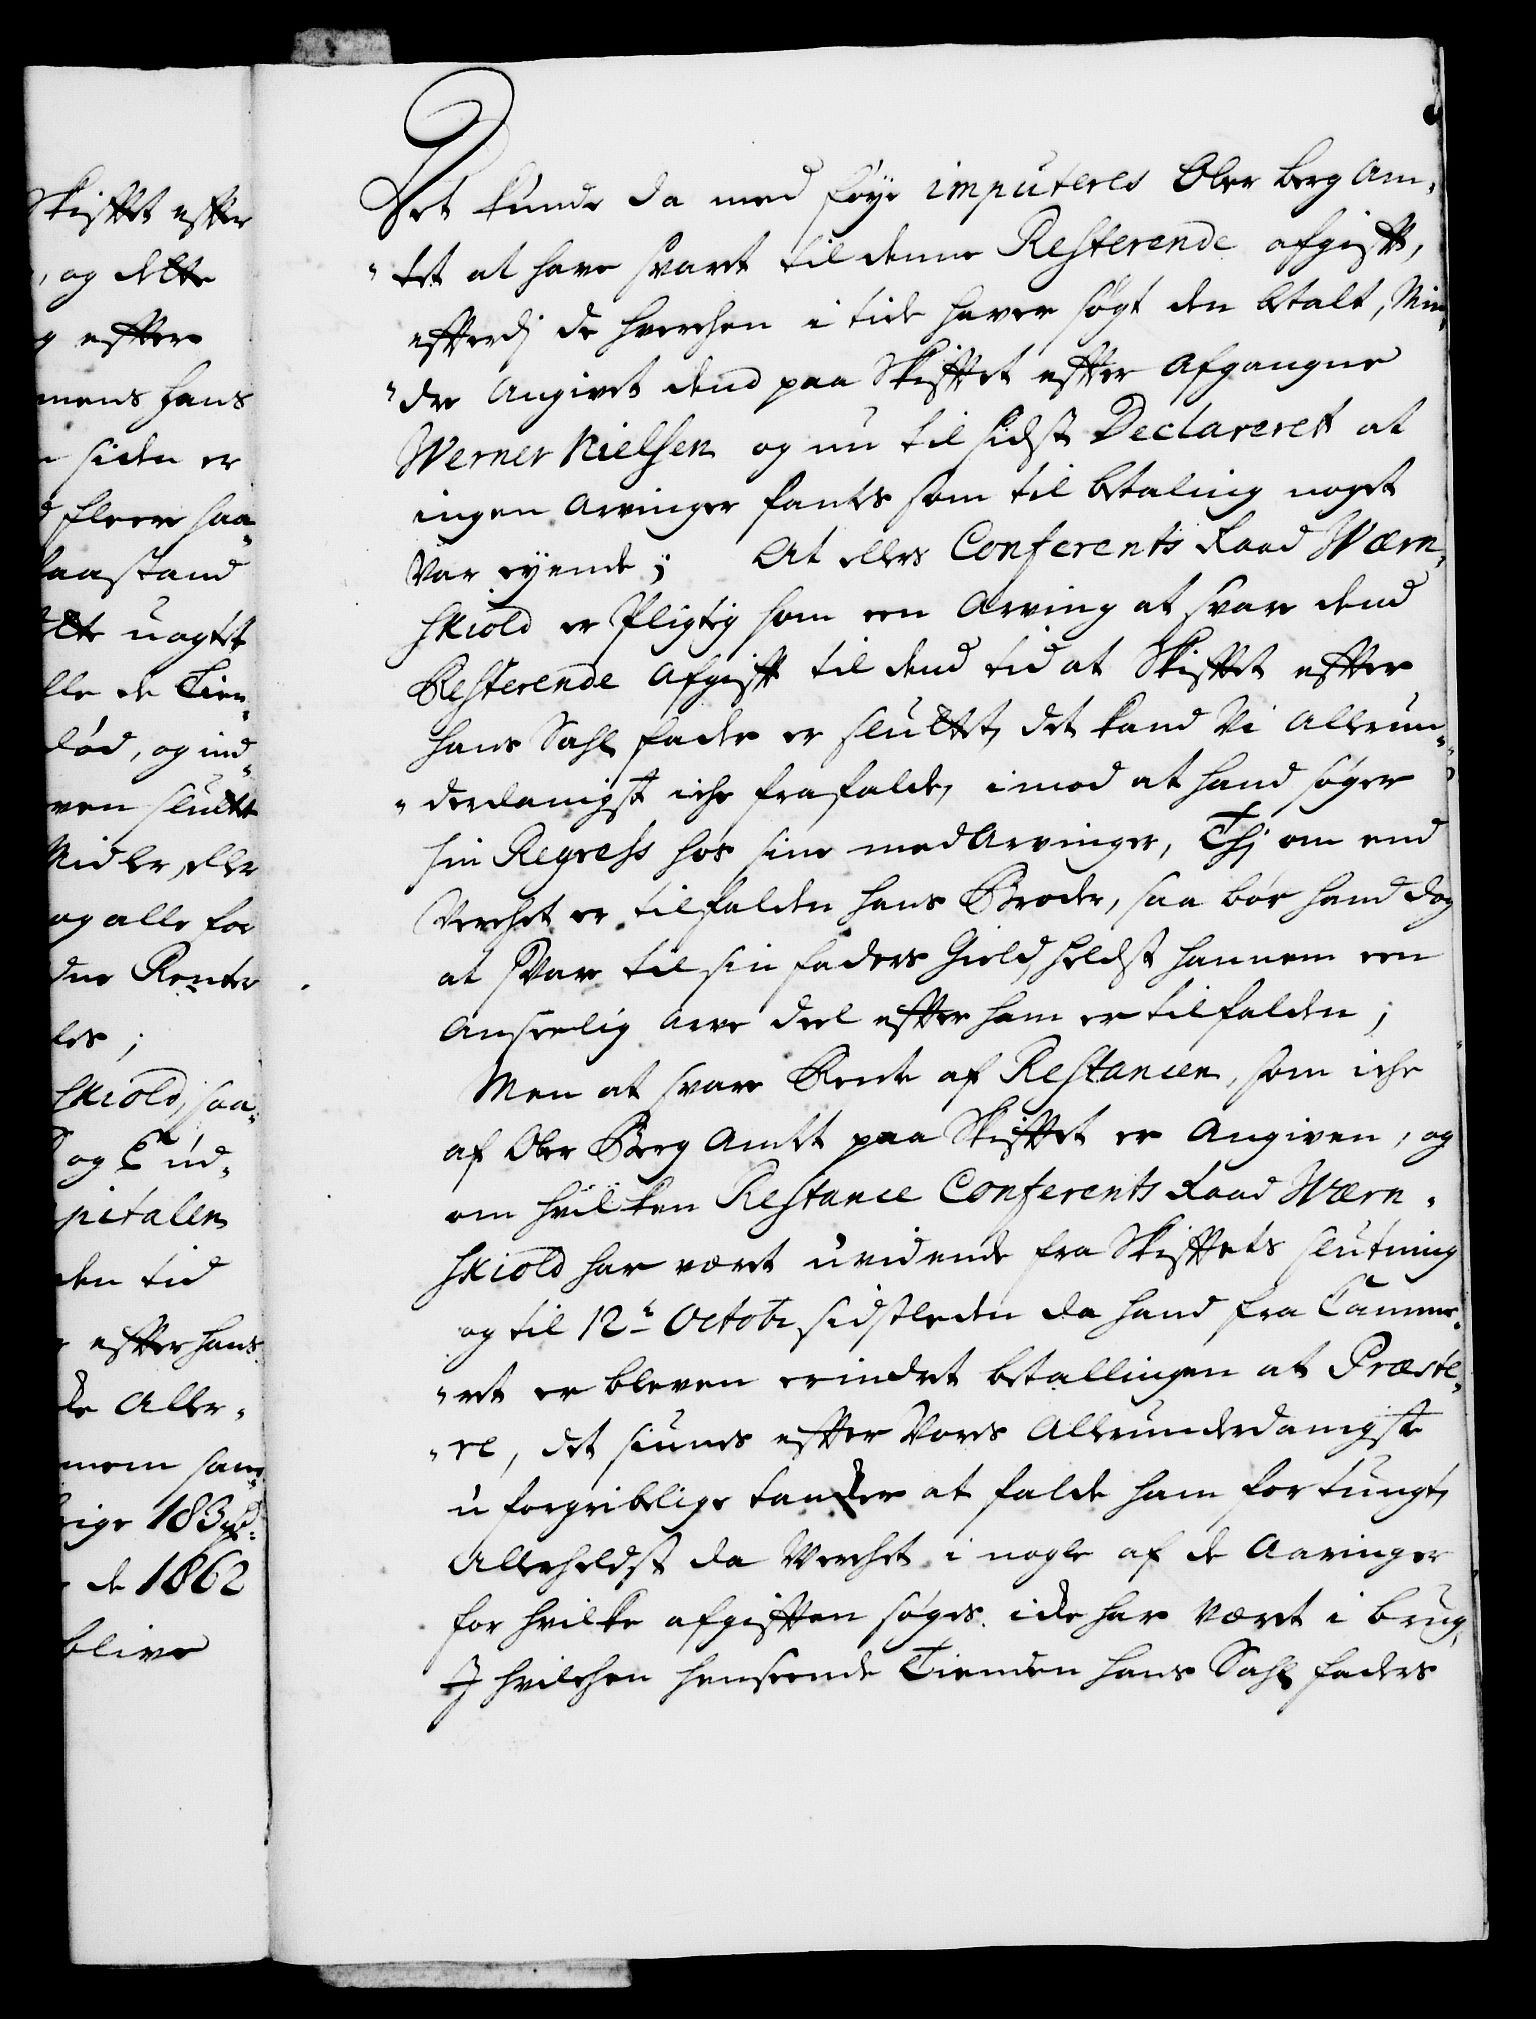 Skifftet effter
, og dette
g effter
mens hans
siden er
fleere saa„
paastand
ette uagtet
lle de Tien„
død, og ind„
ven sluttet
Midler, eller
og alle for
dne Renter
les;
Skiold, saa„
og Eud„
pitalen
den tid
effter hans
de Aller„
mem sam„
rige 183 rd
de 1862
blive
Det kunde da med føye imputeres Ober Berg Am„
„tet at have svaret til denne Resterende afgifft,
efftterdj de hverchen i tide haver søgt den betalt, Min„
„dre Angivet dend paa Skifftet effter Afgangne
Werner Nielsen og nu til sidst Declareret at
ingen Arvinger fantes som til betaling noget
var eyende; At ellers Conferents Raad Wærn„
Skiold er Pligtig som een Arving at svare dend
Resterende Afgifft til dend tid at Skifftet effter
hans Sahl. fader er sluttet, det kand Vi Allerun„
„derdanigst iche frafalde, imod at hand søger
sin Regress hos sine medArvinger, Thj om end
Verchet er tilfalden hans Broder, saa bør hand dog
at svare til sin faders Gield, heldst hannem een
Anseelig Arve deel effter ham er tilfalden;
Men at svare Rente af Restancen, som iche
af Ober Berg Amtet paa Skifftet er Angiven, og
om hvilken Restance Conferents Raad Wærn„
Skiold har været uvidende fra Skifftets slutning
og til 12te Octobr sidstleden da hand fra Cammer„
„ret er bleven erindret betallingen at Præste„
„re, det siunes effter Vores Allerunderdanigste
uforgribelige tancker at falde ham for tungt,
Allerheldst da Verchet i nogle af de Aaringer
for hvilke afgifften søges iche har været i brug,
I hvilchen henseende Tienden hans Sahl. faders